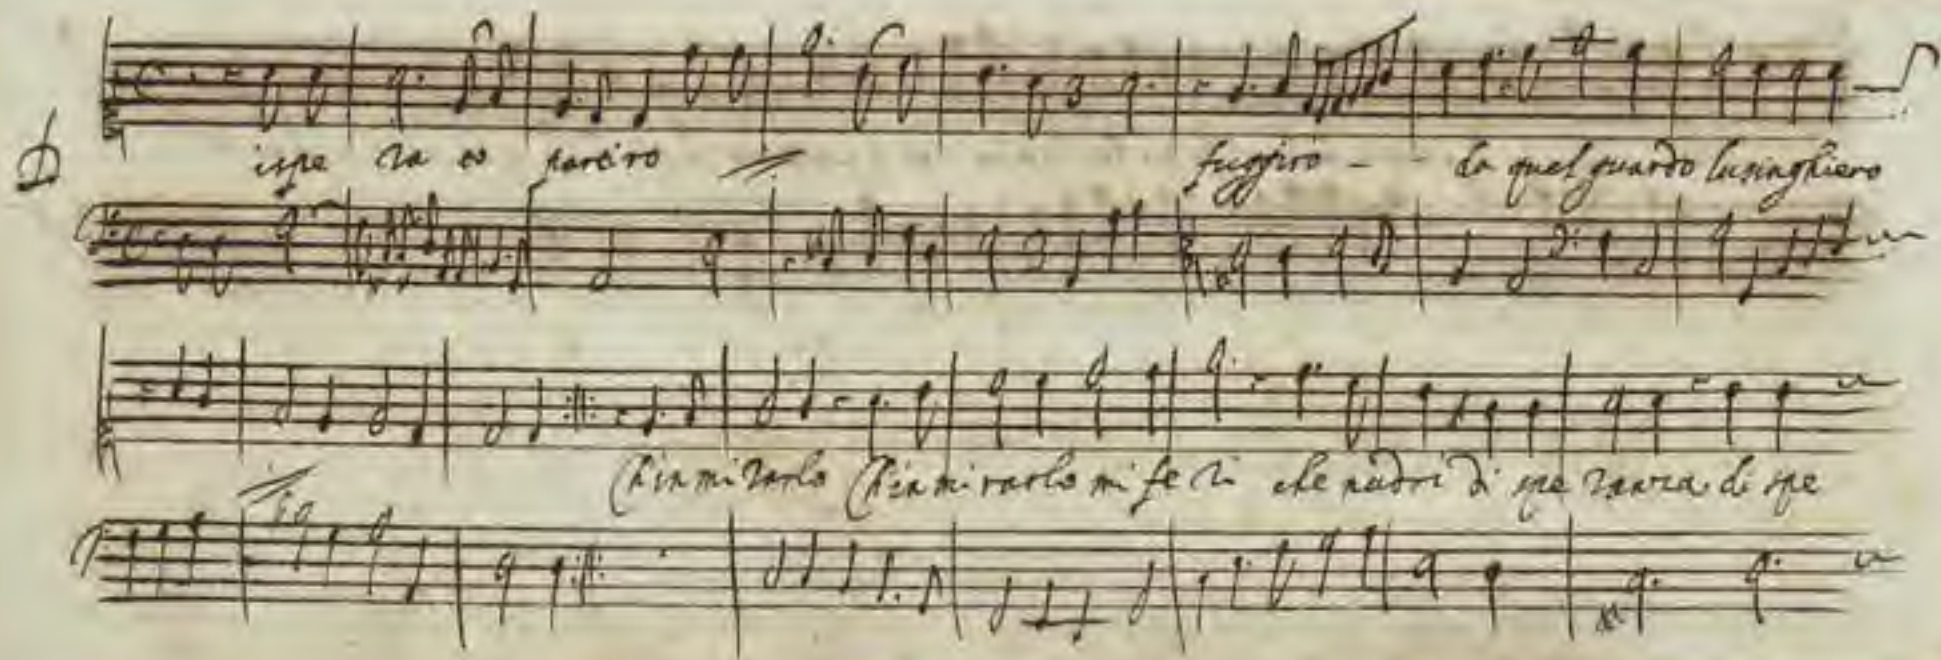 D ispe ra to partiro fuggiro da quel guardo lusinghiero
Ch'in mirarlo Ch'in mirarlo mi fe ri che nudri di spe ranza di spe